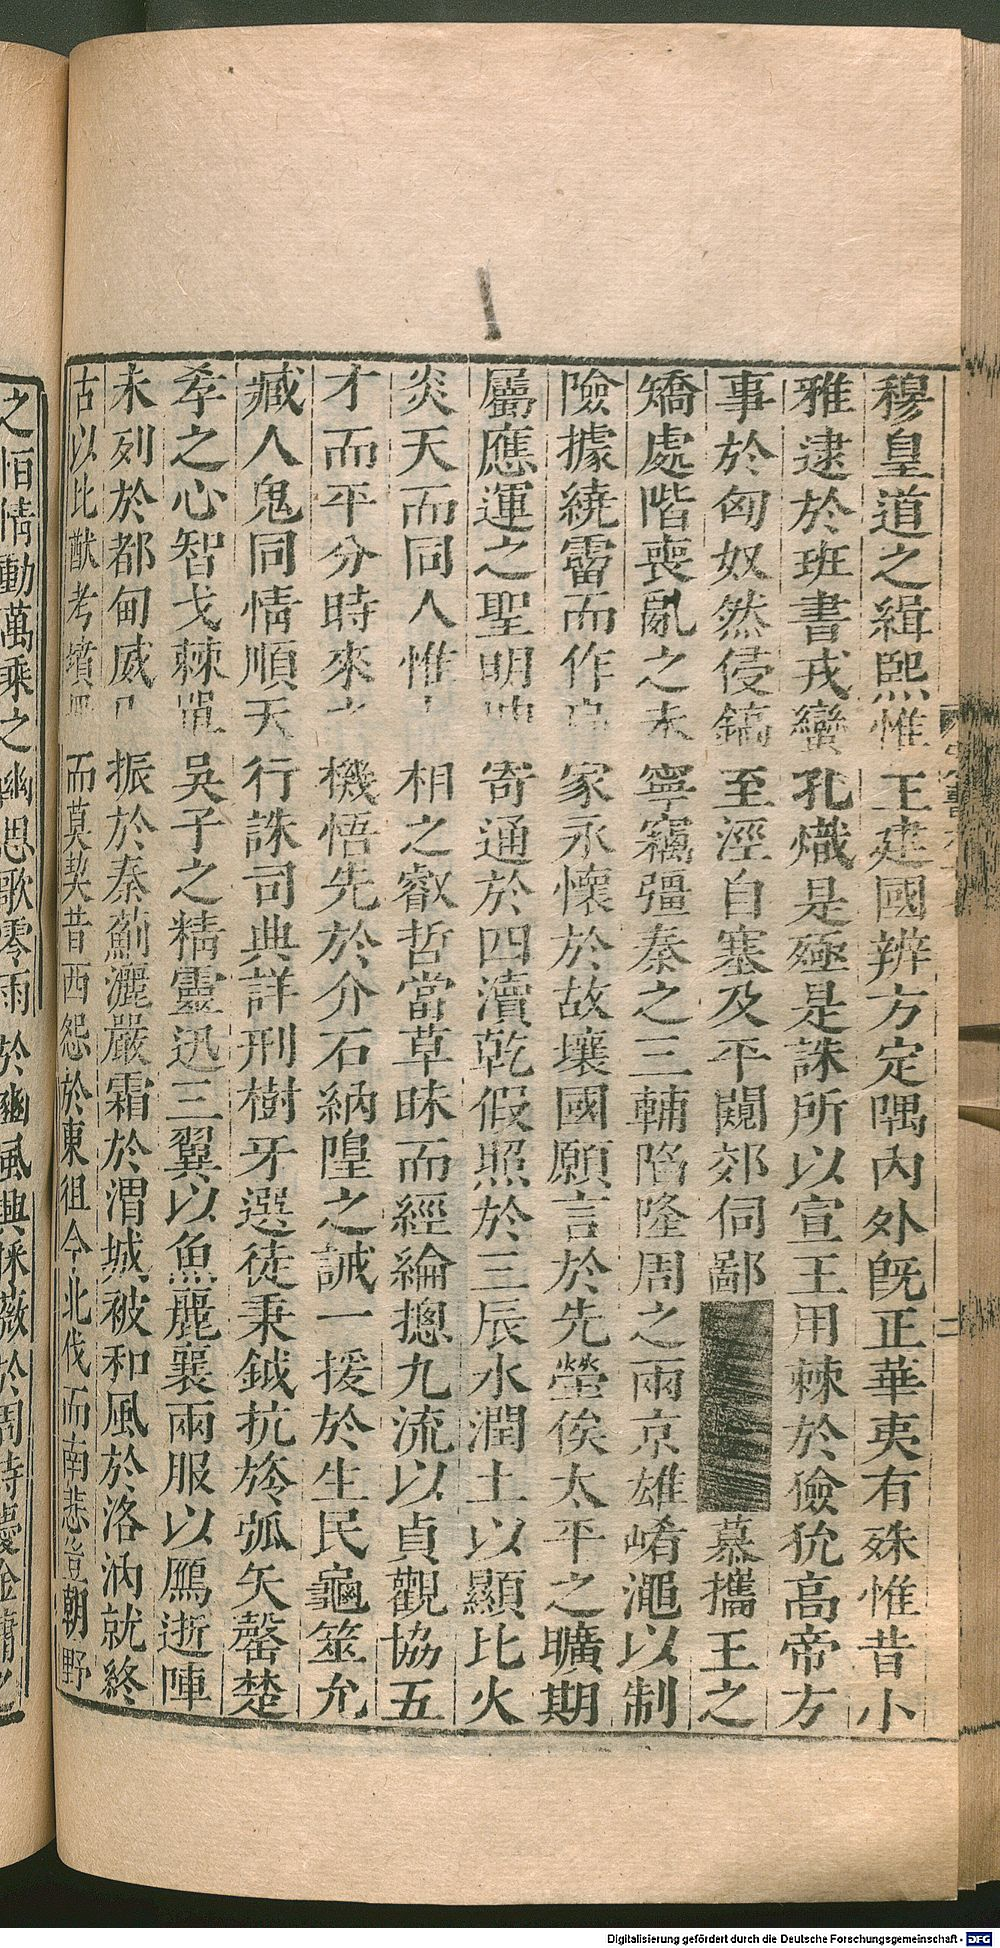 穆皇道之緝熙惟王建國辨方定隅內外旣正華夷有殊惟昔小
雅逮於班書戎蠻孔熾是殛是誅所以宣王用棘於獫狁高帝方
事於匈奴然侵鎬至涇自塞及平闚郊伺鄙慕攜王之
矯處階喪亂之未寧竊彊秦之三輔陷隆周之兩京雄崤澠以制
險據繞霤而作家永懷於故壤國願言於先塋俟太平之曠期
屬應運之聖明寄通於四瀆乾假照於三辰水潤土以顯比火
炎天而同人惟相之叡哲當草昧而經綸摠九流以貞觀協五
才而平分時來機悟先於介石納隍之誡一援於生民龜筮允
臧人鬼同情順天行誅司典詳刑樹牙選徒秉鉞抗旍弧矢罄楚
孝之心智戈棘吳子之精靈迅三翼以魚麗襄兩服以鴈逝陣
未列於都甸威振於秦薊灑嚴霜於渭城被和風於洛汭就終
古以比猷考墳而莫契昔西怨於東徂今北伐而南悲豈朝野
之恒情動萬乘之幽思歌零雨於豳風興採薇於周詩慶金墉
Digitalisierung gefördert durch die Deutsche Forschungsgemeinschaft - DFG